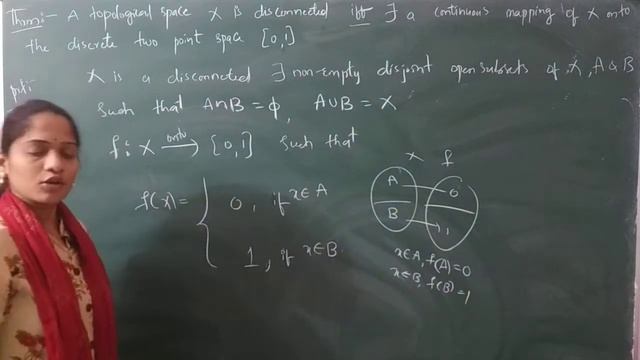 Thm:- A topological space X is disconnected iff ∃ a continuous mapping of X onto
the discrete two point space [0,1]
prf:- X is a disconnected ∃ non-empty disjoint open subsets of X, A & B
Such that A∩B = ϕ, A∪B = X
f: X onto→ [0,1] Such that
f(x) = { 0, if x∈A
1, if x∈B.
X f
A 0
B 1
x∈A, f(A)=0
x∈B, f(B)=1